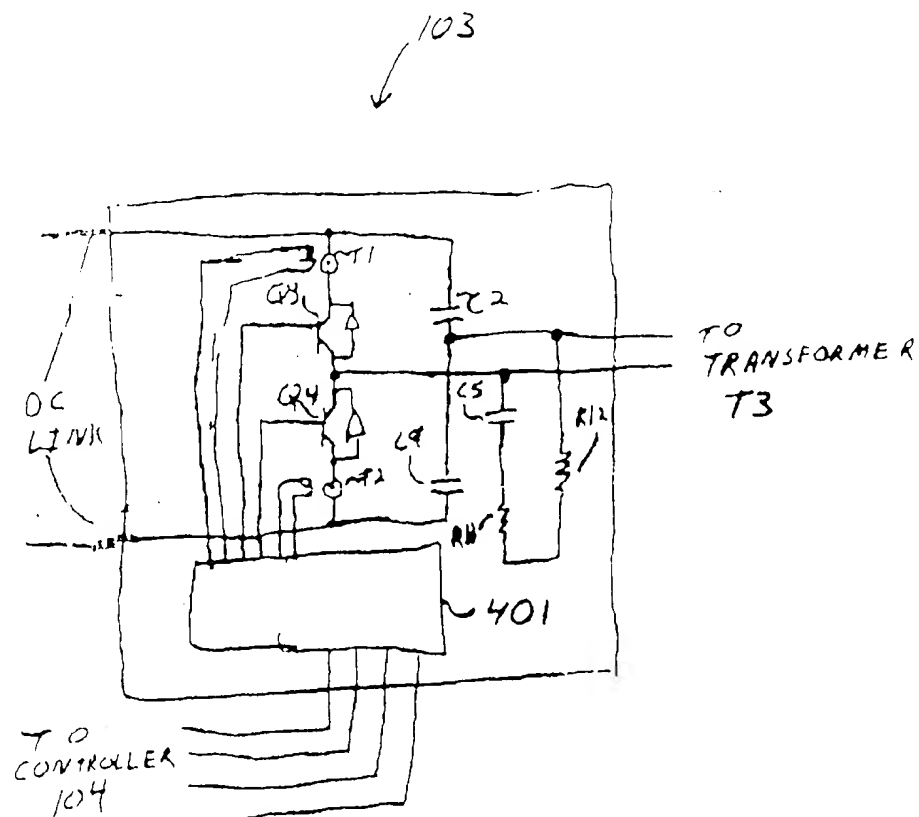 103
T1
Q3
C2
TO
TRANSFORMER
T3
C5
Q4
R12
DC
LINK
C4
T2
R11
401
TO
CONTROLLER
104